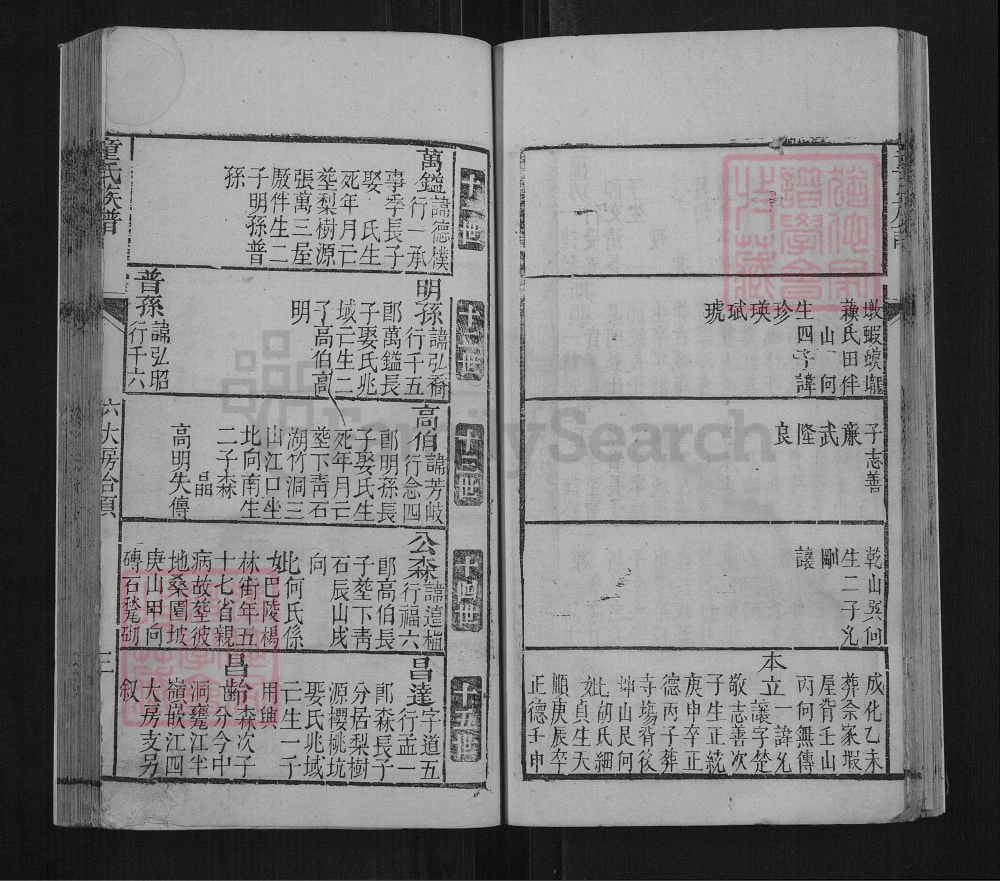 墩蝦蟆壠
蘓氏田件
山　向
生四子諱
珍瑛珷
琥
子志善
廉
武
隆
良
乾山巽向
生二子允
剛
讓
成化乙未
葬佘家塅
屋背壬山
丙向無傳
本立一諱允
讓字楚
敬志善次
子生正統
庚申卒正
德丙子葬
寺塲背後
坤山艮向
妣胡氏細
女貞生天
順庚辰卒
正德壬申
十一世
萬鎰諱德樸
行一承
事季長子
娶　氏生
死年月亡
塟梨樹源
張萬三屋
厫件生二
子明孫普
孫
十二世
明孫諱弘裔
行千五
郎萬鎰長
子娶氏兆
域亡生二
子高伯高
明
普孫諱弘昭
行千六
十三世
高伯諱芳岐
行念四
郎明孫長
子娶氏生
死年月亡
塟下靑石
湖竹洞三
山江口坐
北向南生
二子森
晶
高明失傳
十四世
公森諱道植
行福六
郎高伯長
子塟下靑
石辰山戌
向
妣何氏係
女巴陵楊
林街年五
十七省親
病故塟彼
地桑園坡
庚山甲向
磚石甃砌
十五世
昌達字道五
行孟一
郎森長子
分居梨樹
源櫻桃坑
娶氏兆域
亡生一子
用興
昌齡森次子
分今中
洞甕江半
嶺嵌江四
大房支另
敘
童氏族普
六大房怠頁
三
FamilySearch